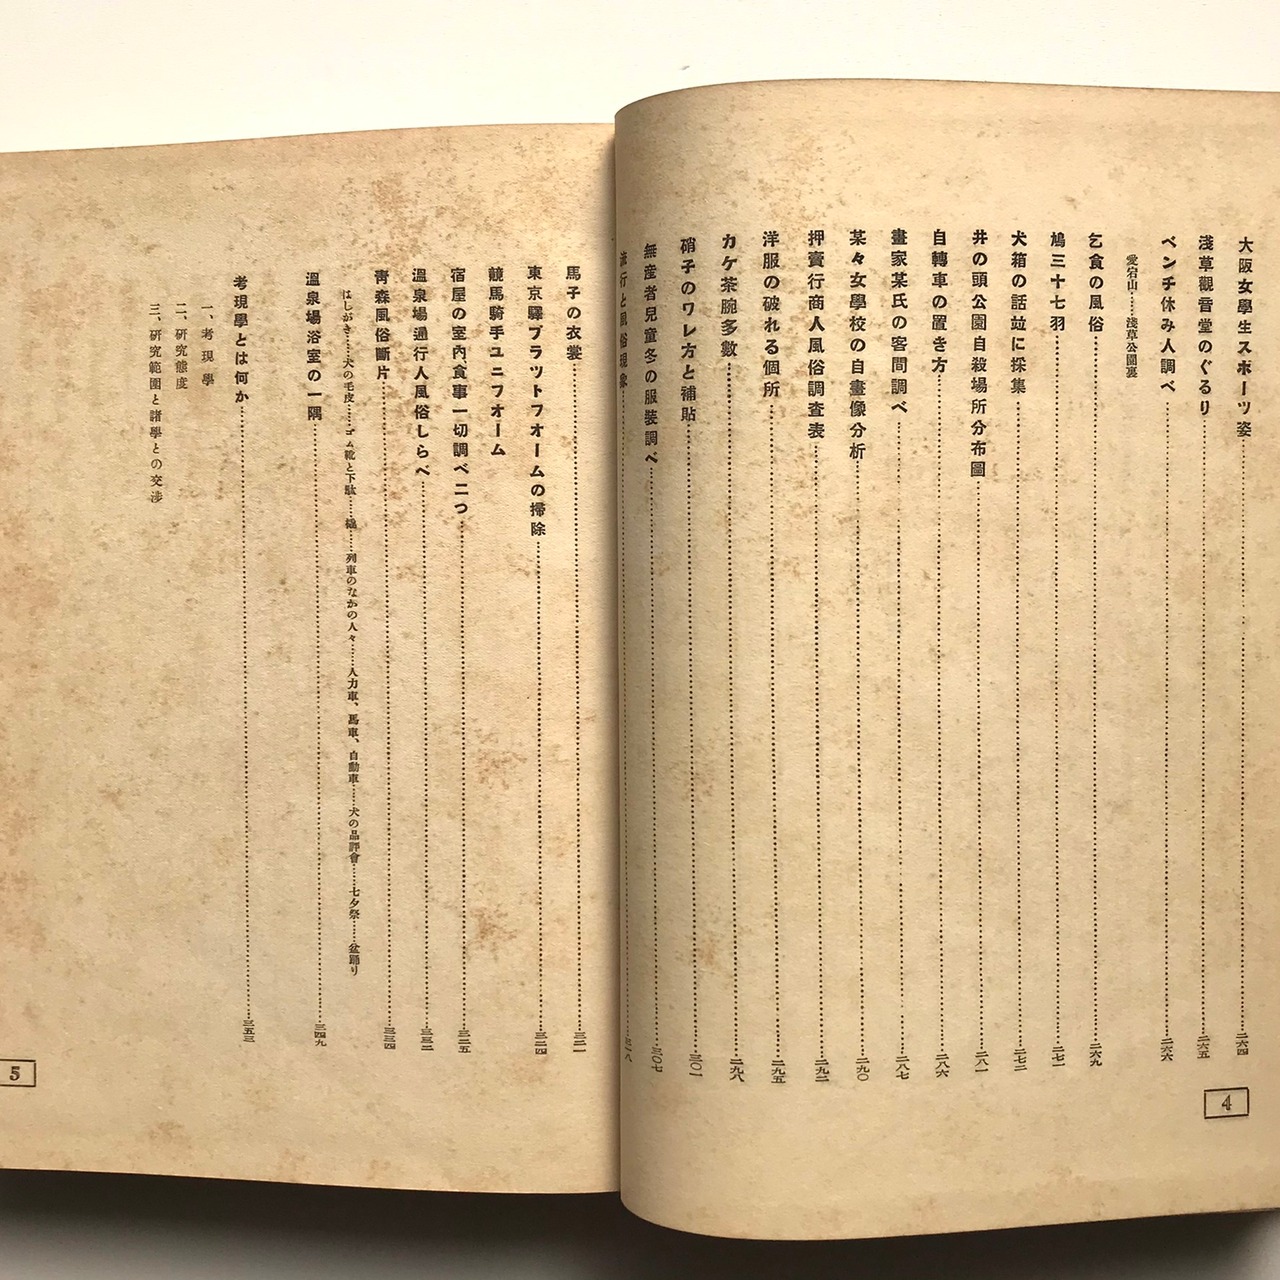 大阪女學生スポーツ姿……二六四
淺草觀音堂のぐるり……二六五
ベンチ休み人調べ……二六六
愛宕山……淺草公園裏
乞食の風俗……二六九
鳩三十七羽……二七一
犬箱の話竝に採集……二七二
井の頭公園自殺場所分布圖……二八一
自轉車の置き方……二八六
畫家某氏の客間調べ……二八七
某々女學校の自畫像分析……二九〇
押賣行商人風俗調査表……二九二
洋服の破れる個所……二九五
カケ茶腕多數……二九八
硝子のワレ方と補貼……三〇一
無産者兒童冬の服裝調べ……三〇七
流行と風俗現象……三一八
4
馬子の衣裳……三二一
東京驛プラットフオームの掃除……三二四
競馬騎手ユニフオーム
宿屋の室内、食事一切調べ二つ……三二五
溫泉場通行人風俗しらべ……三三二
靑森風俗斷片……三三四
はしがき……犬の毛皮……ゴム靴と下駄……橇……列車のなかの人々……人力車、馬車、自動車……犬の品評會……七夕祭……盆踊り
溫泉場浴室の一隅……三四九
考現學とは何か……三五三
一、考現學
二、硏究態度
三、硏究範圍と諸學との交渉
5